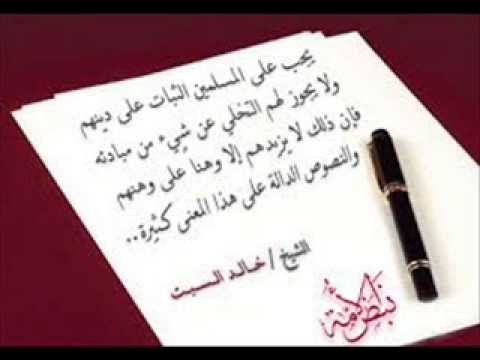 يجب على المسلمين الثبات على دينهم
ولا يجوز لهم التخلي عن شيء من مبادئه
فإن ذلك لا يزيدهم إلا وهنا على وهنهم
والنصوص الدالة على هذا المعنى كثيرة..
الشيخ / خالد السبت
نبض أمة